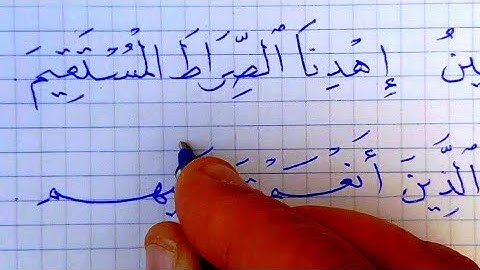 ـينُ اِهْدِنَا ٱلصِّرَاطَ المُسْتَقِيمَ
ٱلَّذِينَ أَنْعَمْتَ ـيهم